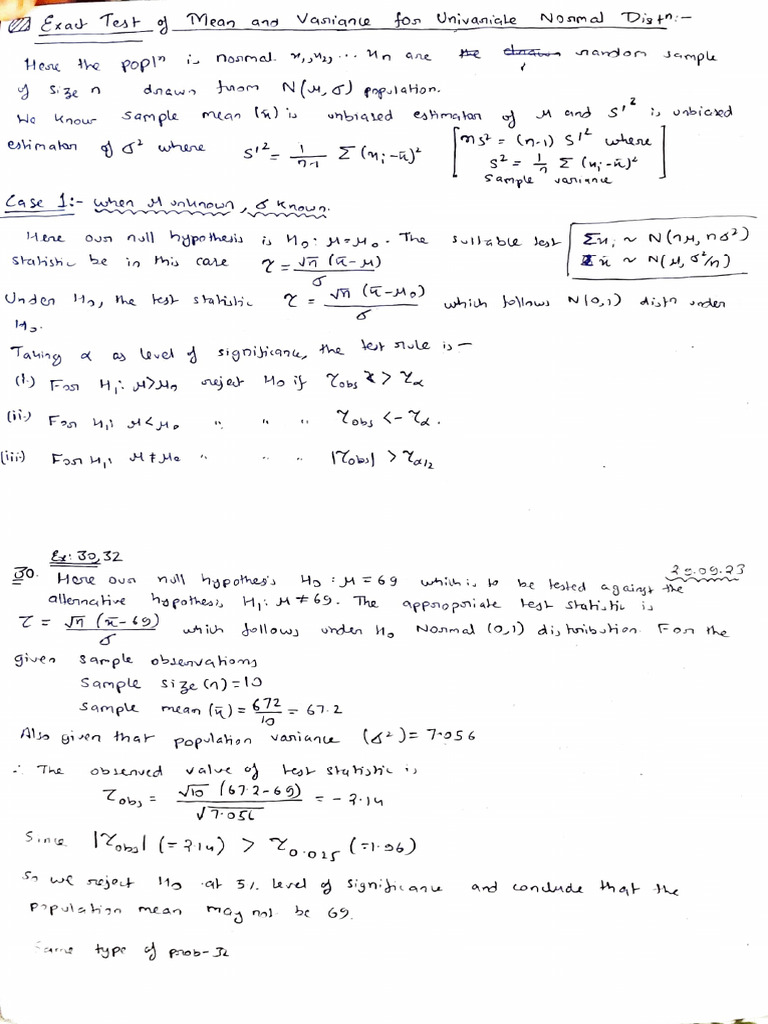 Exact Test of Mean and Variance for Univariate Normal Distⁿ:-
Here the poplⁿ is normal. x₁, x₂, ... xn are random sample
of size n drawn from N(μ, σ) population.
We know sample mean (x̄) is unbiased estimator of μ and S'² is unbiased
estimator of σ² where S'² = 1/(n-1) Σ(xᵢ-x̄)²
[nS² = (n-1) S'² where
S² = 1/n Σ(xᵢ-x̄)²
sample variance]
Case 1:- when μ unknown, σ known.
Here our null hypothesis is H₀: μ=μ₀. The suitable test
statistic be in this case τ = √n (x̄-μ)/σ
Σxᵢ ~ N(nμ, nσ²)
x̄ ~ N(μ, σ²/n)
Under H₀, the test statistic τ = √n (x̄-μ₀)/σ which follows N(0,1) distn under
H₀.
Taking α as level of significance, the test rule is-
(i.) For H₁: μ>μ₀ reject H₀ if τobs > τα
(ii.) For H₁: μ<μ₀ " " " τobs <-τα.
(iii.) For H₁: μ≠μ₀ " " " |τobs| > τα/2
Ex: 30,32
25.09.23
30. Here our null hypothesis H₀: μ=69 which is to be tested against the
alternative hypothesis H₁: μ≠69. The appropriate test statistic is
τ = √n (x̄-69)/σ which follows under H₀ Normal (0,1) distribution. For the
given sample observations
Sample size (n) = 10
Sample mean (x̄) = 672/10 = 67.2
Also given that population variance (σ²) = 7.056
∴ The observed value of test statistic is
τobs = √10 (67.2-69)/√7.056 = -2.14
Since |τobs| (=2.14) > τ0.025 (=1.96)
So we reject H₀ at 5% level of significance and conclude that the
population mean may not be 69.
Same type of prob-32